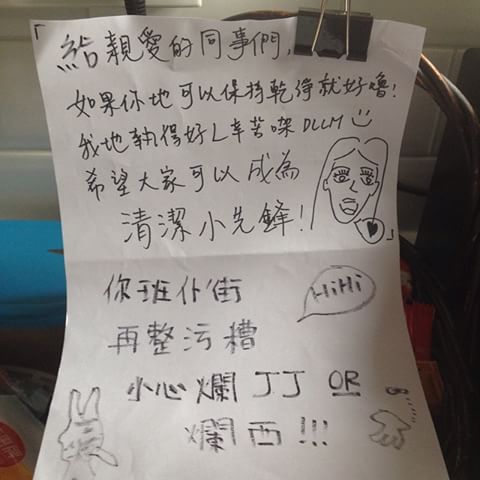 「給親愛的同事們,
如果你地可以保持乾淨就好嚕!
我地執得好L辛苦㗎DLLM
希望大家可以成為
清潔小先鋒!」
你班仆街
HiHi
再整污糟
小心爛JJ OR
爛西!!!